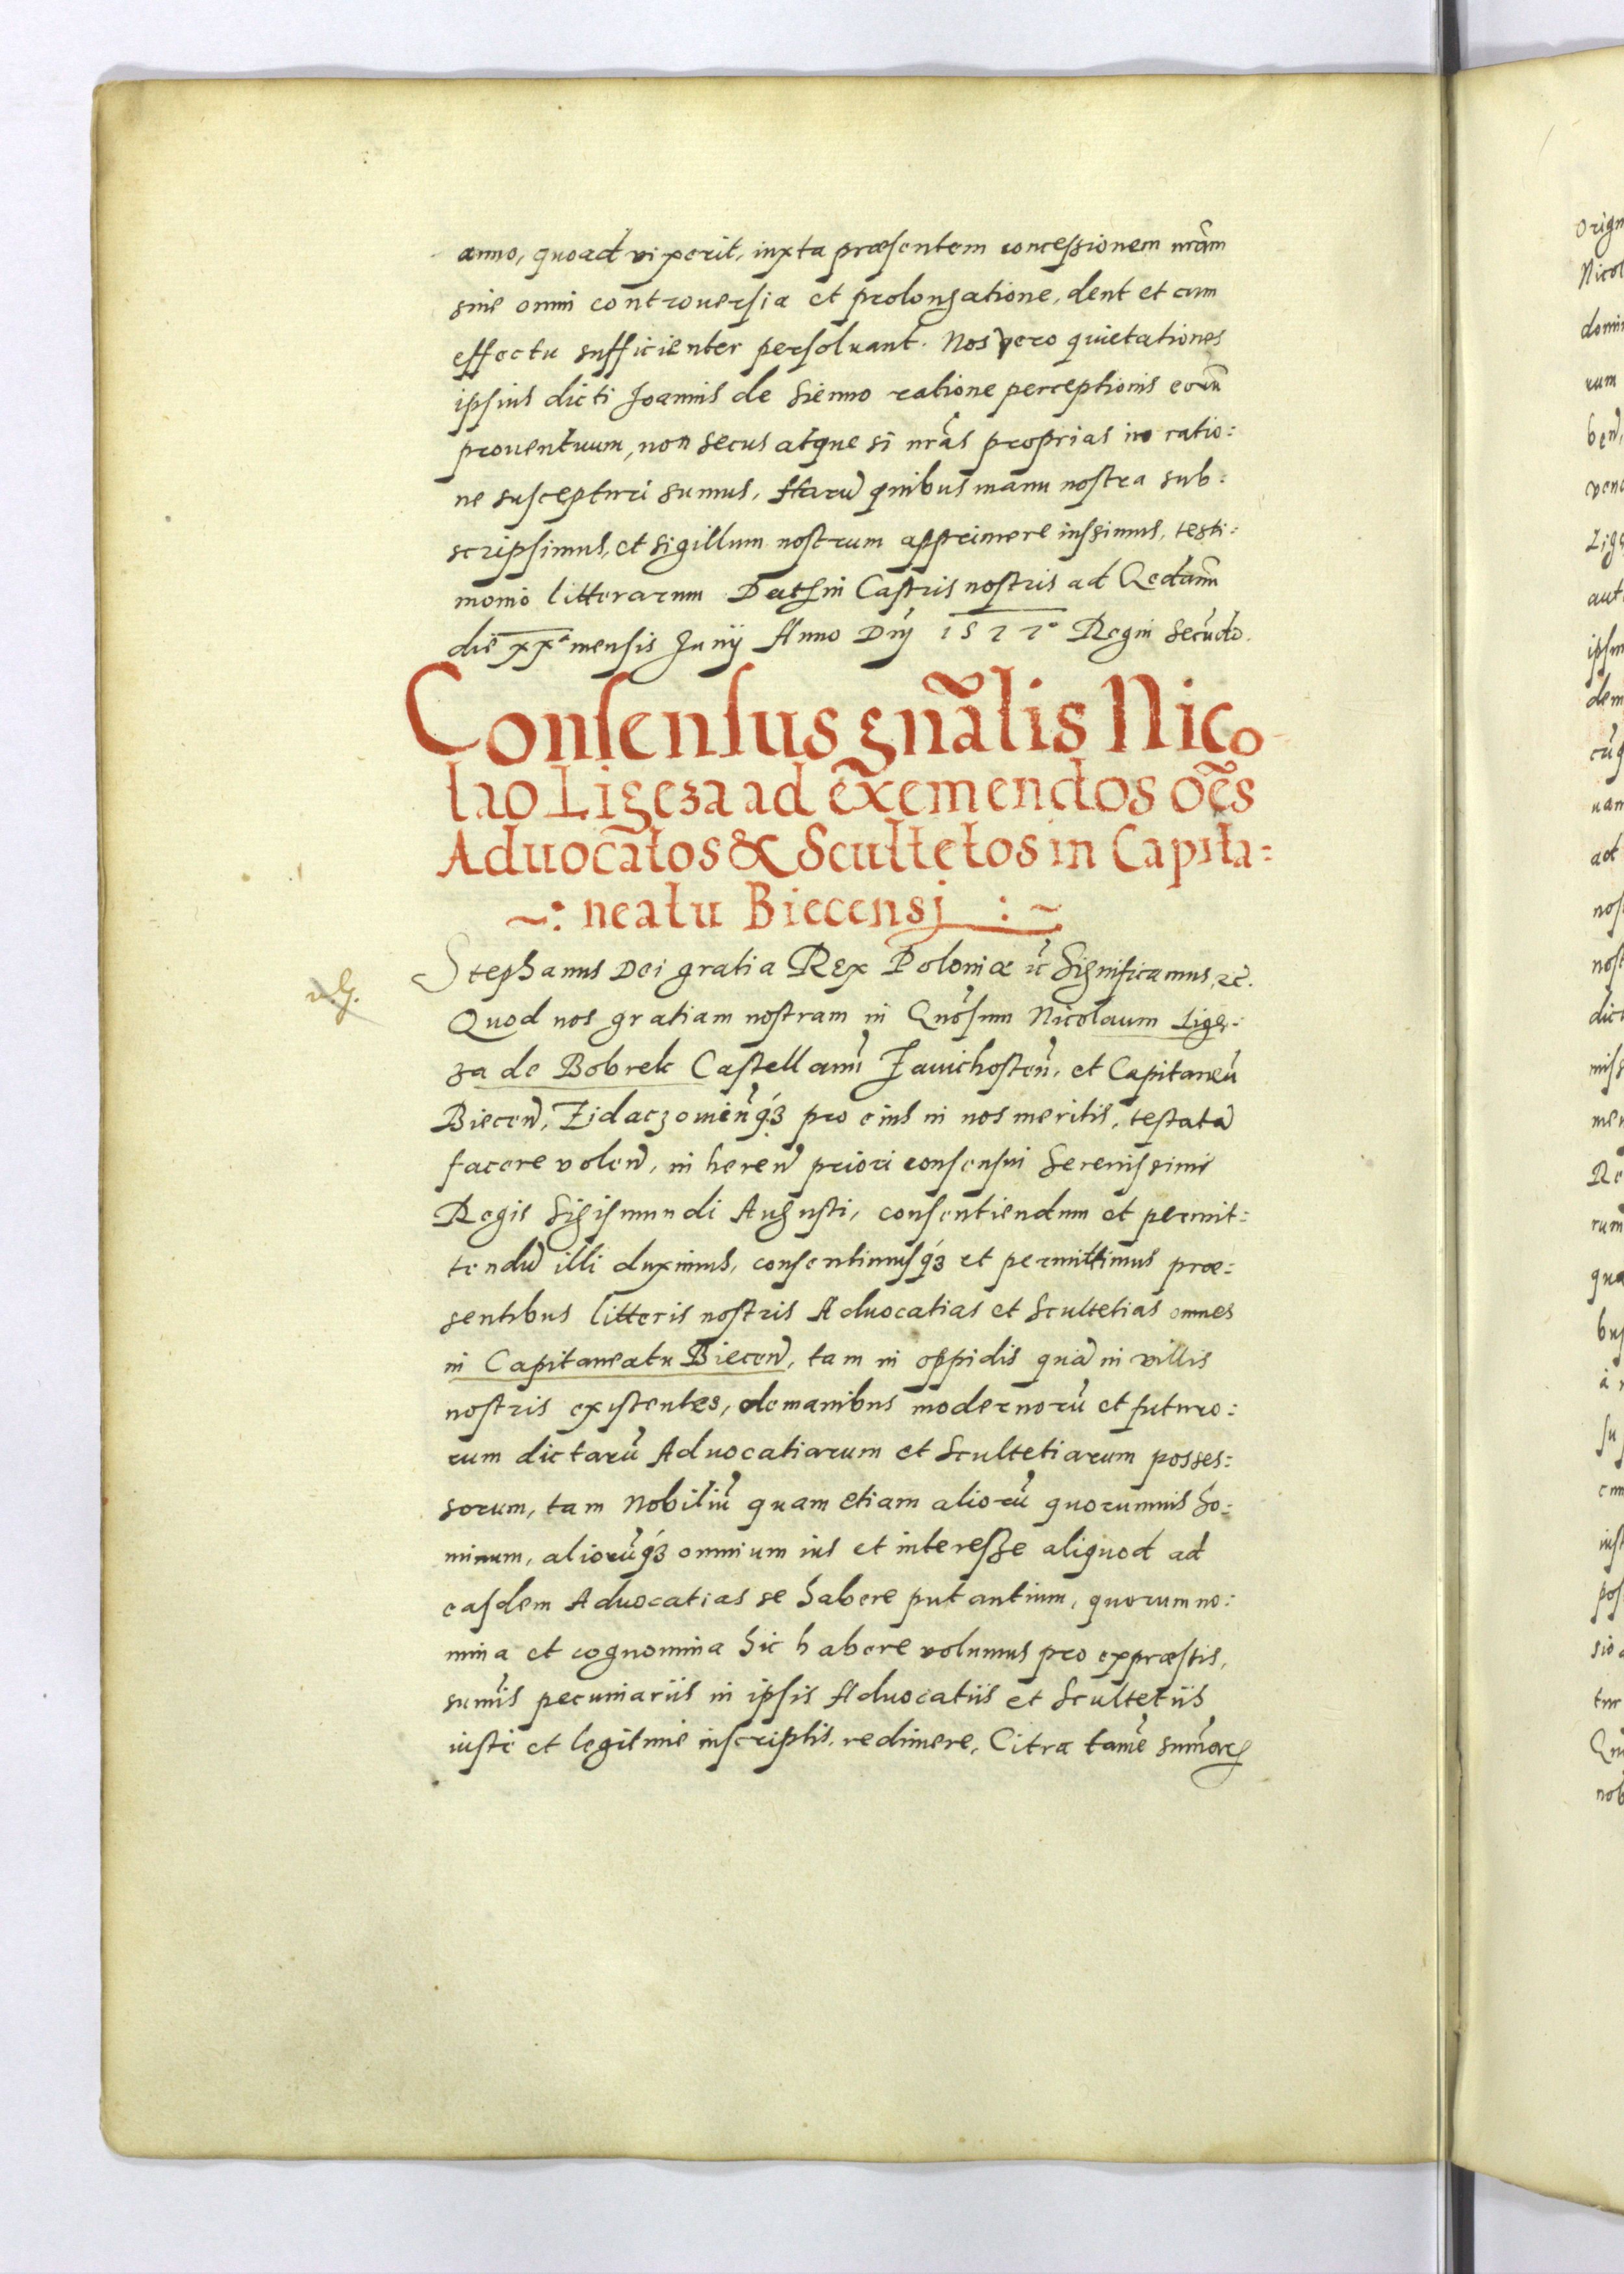 anno, quoad vixerit, iuxta præsentem concessionem nrãm
sine omni controuersia et prolongatione, dent et cum
effectu sufficienter persoluant. Nos vero quietationes
ipsius dicti Joannis de Sienno ratione perceptionis eorũ
prouentuum, non secus atque si nrãs proprias in ratio:
ne suscepturi sumus, Harũ quibus manu nostra sub:
scripsimus, et sigillum nostrum apprimere iussimus, testi:
monio litterarum Dat in Castris nostris ad
die xxa mensis Junij Anno Dnĩ 1577o Regni Secũdo.
Consensus gnãlis Nico
lao Ligeza ad exemendos oẽs
Aduocatos & Scultetos in Capita:
~: neatu Biecensj : ~
Stephanus Dei gratia Rex Poloniæ ẽc Significamus, ẽc.
Quod nos gratiam nostram in Gnõsum Nicolaum Lige:
za de Bobrek Castellanũ Zauichosteñ, et Capitaneũ
Bieceñ, Zidaczouieñq3 pro eius in nos meritis, testatã
facere voleñ, in hereñ priori consensui Serenissimi
Regis Sigismundi Augusti, consentiendum et permit:
tendũ illi duximus, consentimusq3 et permittimus præ:
sentibus litteris nostris Aduocatias et Scultetias omnes
in Capitaneatu Bieceñ, tam in oppidis quã in villis
nostris existentes, de manibus modernorũ et futuro:
rum dictarũ Aduocatiarum et Scultetiarum posses:
sorum, tam Nobiliũ quam etiam aliorũ quorumuis ho:
minum, aliorũq3 omnium ius et interesse aliquod ad
easdem Aduocatias se habere putantium, quorum no:
mina et cognomina hic habere volumus pro expræssis,
sumĩs pecuniariis in ipsis Aduocatiis et Scultetiis
iuste et legitime inscriptis, redimere, Citra tamẽ
Orign
Nicol
domi
rum
beñ,
vend
Lige
aut
ipsu
dem
cũq
uam
ad
nos
nost
dict
miss
mer
Re
rum
qua
bus
à
su
iust
pos
sio
tur
nob